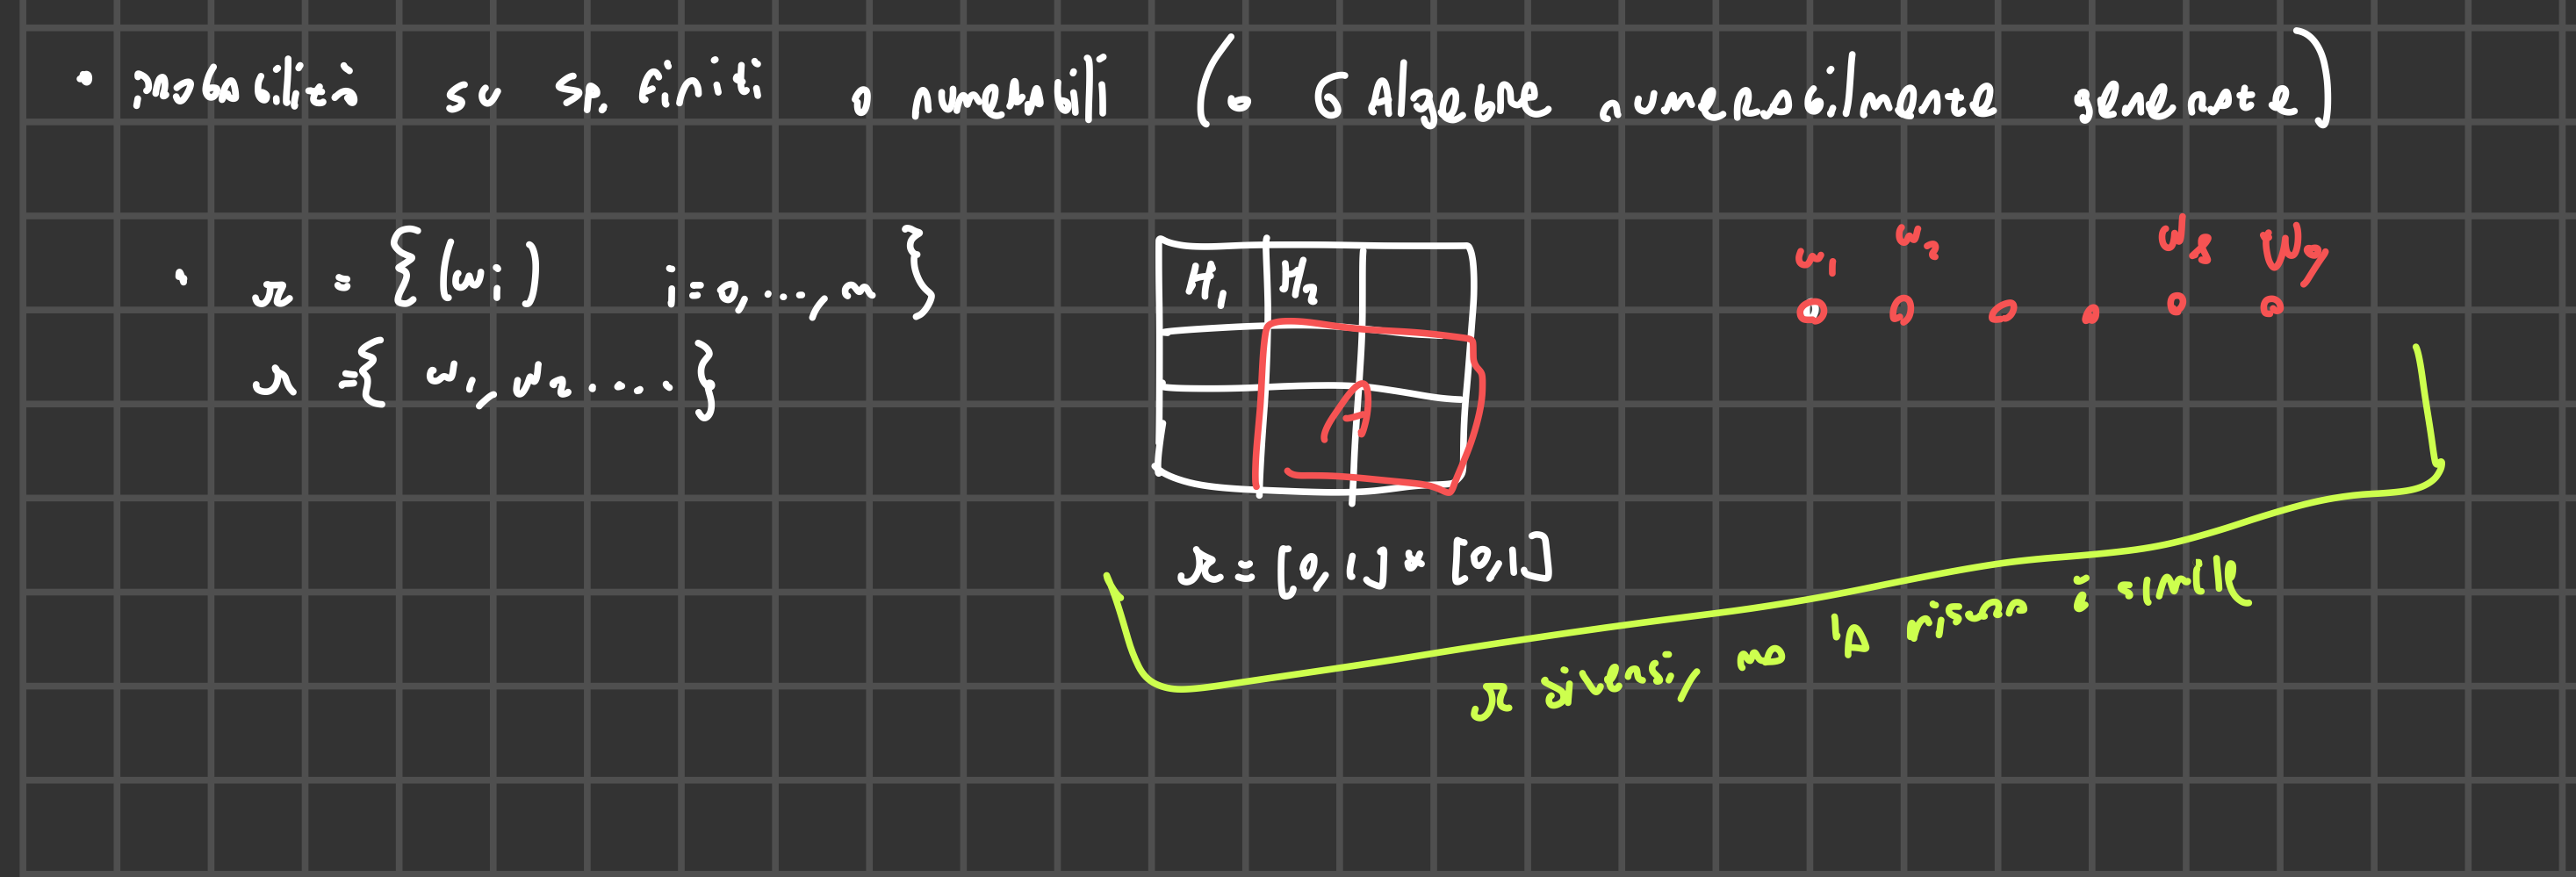 • probabilità su sp. finiti o numerabili (o σ Algebre numerabilmente generate)
• Ω = { (ωi) i=0,...,n }
Ω = { ω1, ω2 .... }
H1 H2
A
Ω = [0,1] * [0,1]
ω1 ω2 ω8 ω9
Ω diversi, ma la misura è simile